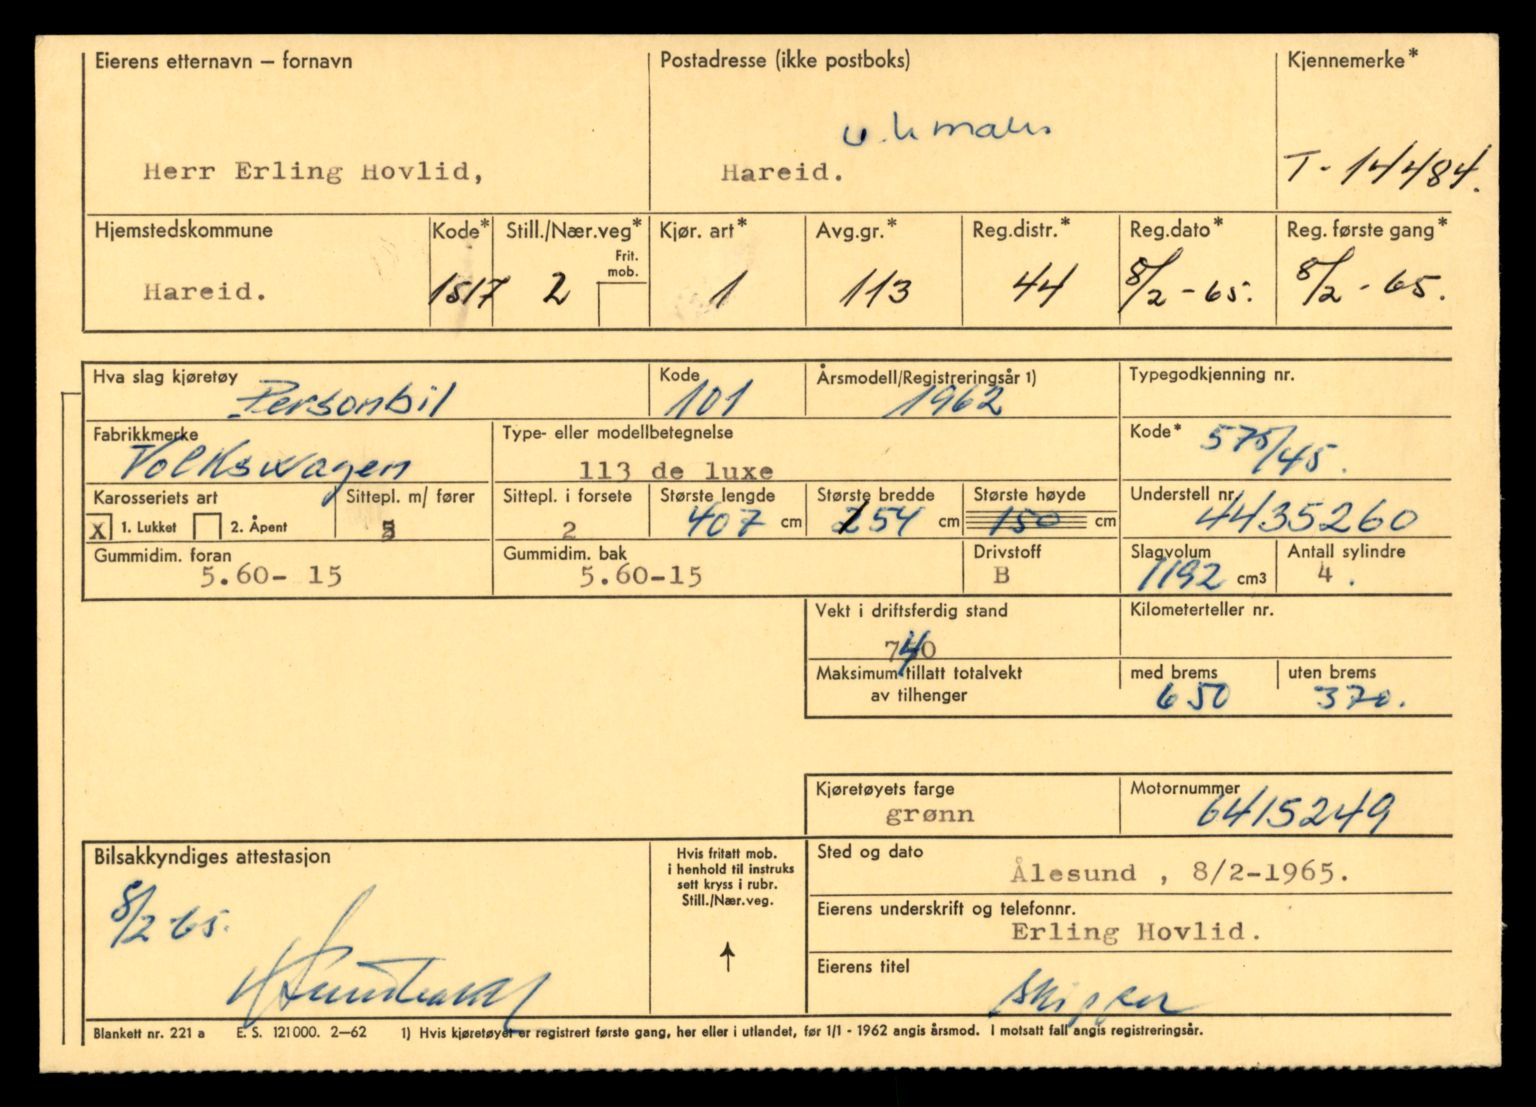 Eierens etternavn – fornavn
Postadresse (ikke postboks)
Kjennemerke*
Herr Erling Hovlid,
Hareid.
T-14484.
Hjemstedskommune
Kode*
Still./Nær.veg*
Frit. mob.
Kjør. art*
Avg.gr.*
Reg.distr.*
Reg.dato*
Reg. første gang*
Hareid.
1517
2
1
113
44
8/2 - 65.
8/2 - 65.
Hva slag kjøretøy
Kode
Årsmodell/Registreringsår 1)
Typegodkjenning nr.
Personbil
101
1962
Fabrikkmerke
Type- eller modellbetegnelse
Kode*
Volkswagen
113 de luxe
575/45.
Karosseriets art
Sittepl. m/ fører
Sittepl. i forsete
Største lengde
Største bredde
Største høyde
Understell nr.
X 1. Lukket
2. Åpent
5
2
407 cm
154 cm
150 cm
4435260
Gummidim. foran
Gummidim. bak
Drivstoff
Slagvolum
Antall sylindre
5.60- 15
5.60-15
B
1192 cm3
4 .
Vekt i driftsferdig stand
Kilometerteller nr.
740
Maksimum tillatt totalvekt
av tilhenger
med brems
uten brems
650
370.
Kjøretøyets farge
Motornummer
grønn
6415249
Bilsakkyndiges attestasjon
8/2-65.
Hvis fritatt mob.
i henhold til instruks
sett kryss i rubr.
Still./Nær.veg.
Sted og dato
Ålesund , 8/2-1965.
Eierens underskrift og telefonnr.
Erling Hovlid.
Eierens titel
skipper
Blankett nr. 221 a E. S. 121000. 2–62 1) Hvis kjøretøyet er registrert første gang, her eller i utlandet, før 1/1 - 1962 angis årsmod. I motsatt fall angis registreringsår.